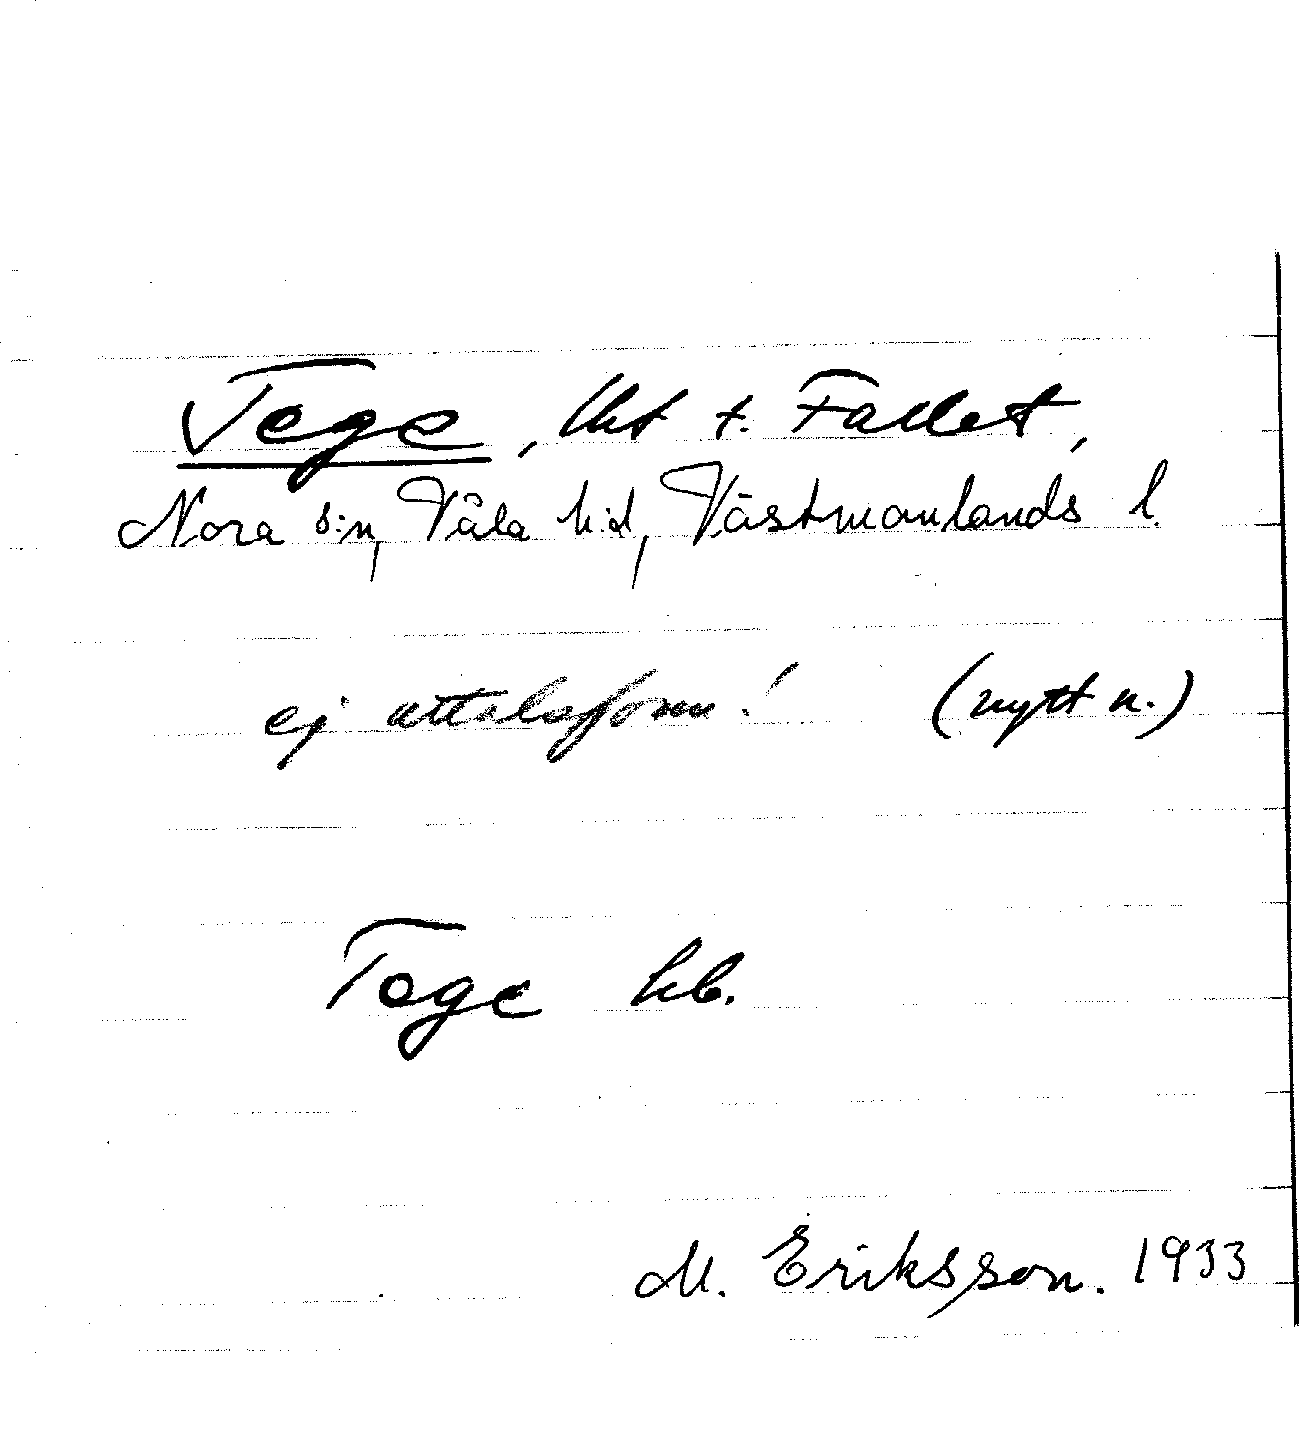 Tege, lht t. Fallet,
Nora s:n, Våla h:d, Västmanlands l.
ej uttalsform! (nytt n.)
Tege hb.
M. Eriksson. 1933